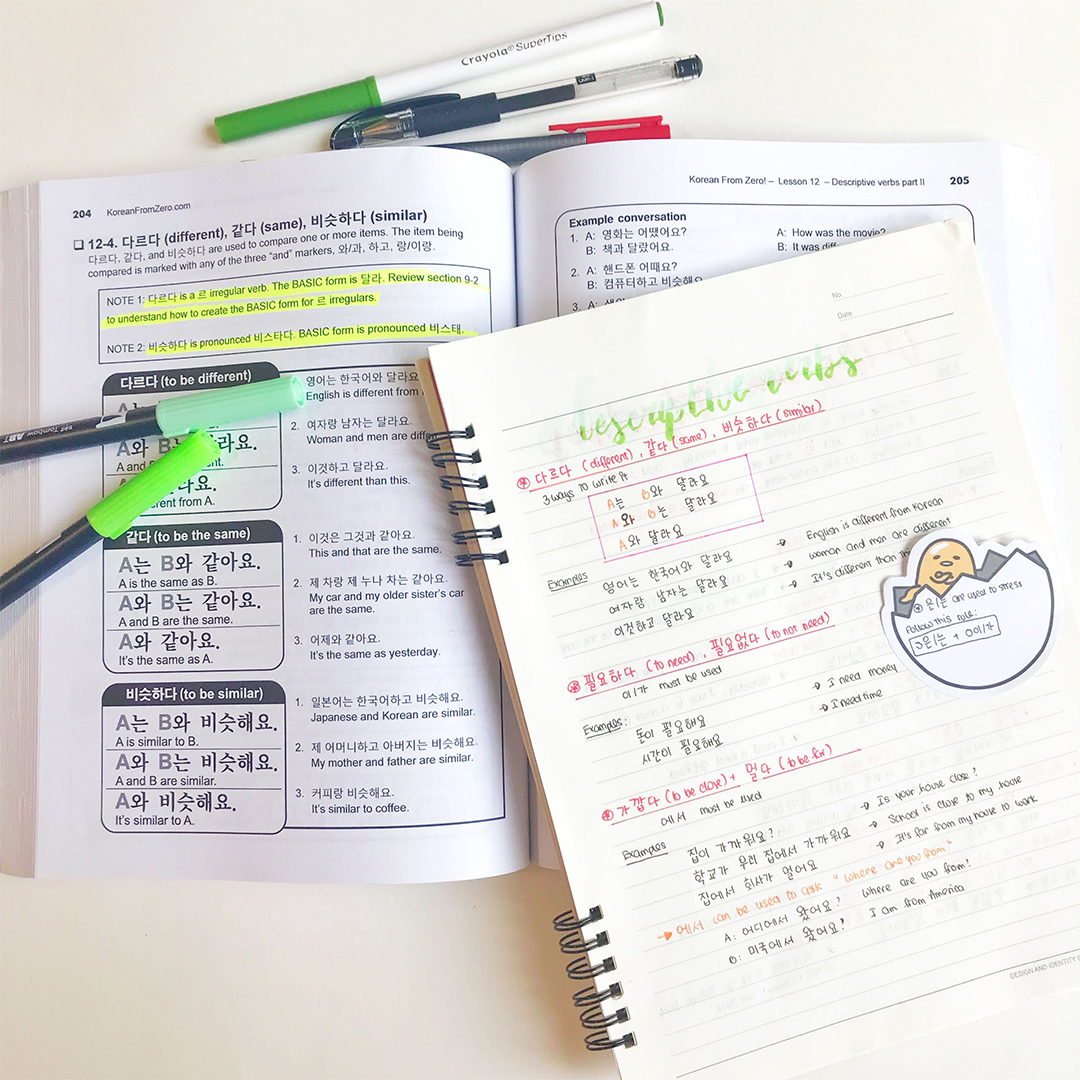 Crayola® SuperTips
204 KoreanFromZero.com
❑ 12-4. 다르다 (different), 같다 (same), 비슷하다 (similar)
다르다, 같다, and 비슷하다 are used to compare one or more items. The item being
compared is marked with any of the three “and” markers, 와/과, 하고, 랑/이랑.
NOTE 1: 다르다 is a 르 irregular verb. The BASIC form is 달라. Review section 9-2
to understand how to create the BASIC form for 르 irregulars.
NOTE 2: 비슷하다 is pronounced 비스타다. BASIC form is pronounced 비스태.
다르다 (to be different)
A와 B 라요.
A and
요.
erent from A.
영어는 한국어와 달라요
English is different from
2. 여자랑 남자는 달라요.
Woman and men are diffe
3. 이것하고 달라요.
It’s different than this.
같다 (to be the same)
A는 B와 같아요.
A is the same as B.
A와 B는 같아요.
A and B are the same.
A와 같아요.
It’s the same as A.
1. 이것은 그것과 같아요.
This and that are the same.
2. 제 차랑 제 누나 차는 같아요.
My car and my older sister’s car
are the same.
3. 어제와 같아요.
It’s the same as yesterday.
비슷하다 (to be similar)
A는 B와 비슷해요.
A is similar to B.
A와 B는 비슷해요.
A and B are similar.
A와 비슷해요.
It’s similar to A.
1. 일본어는 한국어하고 비슷해요.
Japanese and Korean are similar.
2. 제 어머니하고 아버지는 비슷해요.
My mother and father are similar.
3. 커피랑 비슷해요.
It’s similar to coffee.
Tombow ABT
Korean From Zero! – Lesson 12 – Descriptive verbs part II 205
Example conversation
1. A: 영화는 어땠어요? A: How was the movie?
B: 책과 달랐어요. B: It was diff
2. A: 핸드폰 어때요?
B: 컴퓨터하고 비슷해요
3. A: 색
No.
Date
descriptive verbs
다르다 (different), 같다 (same), 비슷하다 (similar)
3 ways to write it
A는 B와 달라요
A와 B는 달라요
A와 달라요
Examples
영어는 한국어와 달라요 → English is different from Korean
여자랑 남자는 달라요 → woman and men are different
이것하고 달라요 → It's different than thi
필요하다 (to need), 필요없다 (to not need)
이/가 must be used
Examples:
돈이 필요해요 → I need money
시간이 필요해요 → I need time
가깝다 (to be close) + 멀다 (to be far)
에서 must be used
Examples
집이 가까워요? → Is your house close?
학교가 우리 집에서 가까워요 → School is close to my house
집에서 회사가 멀어요 → It's far from my house to work
→ 에서 can be used to ask "where are you from"
A: 어디에서 왔어요? Where are you from?
B: 미국에서 왔어요! I am from America
DESIGN AND IDENTITY
은/는 are used to stress
Follow this rule:
은/는 + 이/가